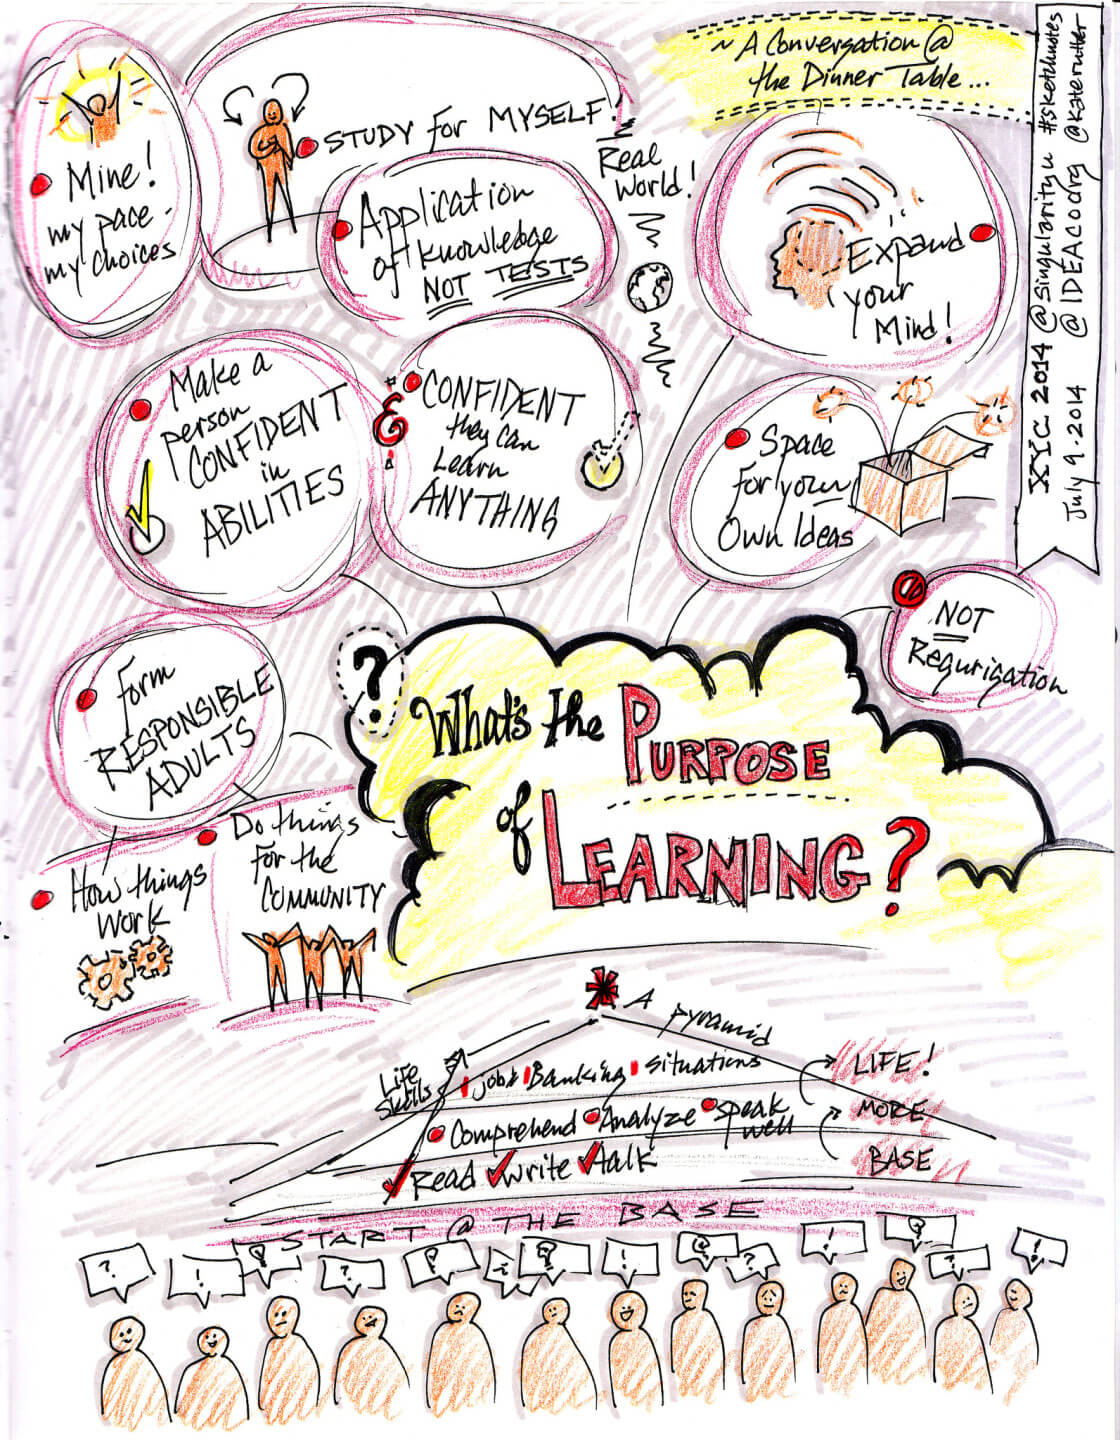 ~ A Conversation @
the Dinner Table...
#sketchnotes
@Katerutter
XYC 2014 @Singularityu
July 9.2014 @IDEAcoorg
Mine!
my pace
my choices
STUDY for MYSELF!
Real
World!
Application
of knowledge
NOT TESTS
Expand
your
Mind!
Make a
person
CONFIDENT
in
ABILITIES
&
CONFIDENT
they can
Learn
ANYTHING
Space
for your
Own Ideas
NOT
Regurigation
Form
RESPONSIBLE
ADULTS
?
What's the PURPOSE
of LEARNING?
How things
Work
Do things
For the
COMMUNITY
A pyramid
Life
Skills
jobs Banking situations
LIFE!
Comprehend Analyze speak
well
MORE
Read write talk
BASE
START @ THE BASE
? ! ? ! ? ! !